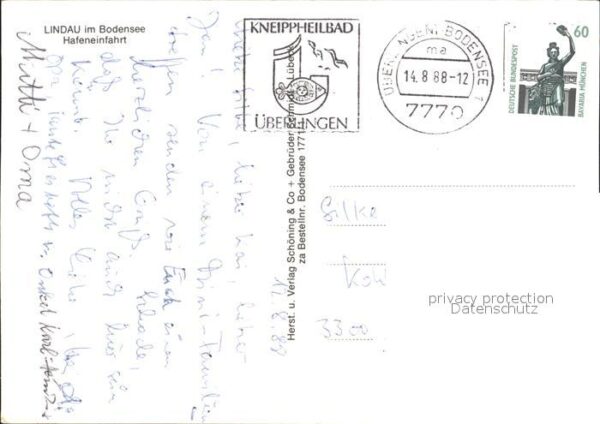 LINDAU im Bodensee
Hafeneinfahrt
KNEIPPHEILBAD
ÜBERLINGEN
ÜBERLINGEN, BODENSEE 1
ma
14.8.88-12
7770
60
DEUTSCHE BUNDESPOST
BAVARIA MÜNCHEN
Herst. u. Verlag Schöning & Co + Gebrüder Schmidt, Lübeck
za Bestellnr. Bodensee 1771
12.8.88
Liebe Silke, lieber Kai, lieber
Jan! Von einem Mini-Familien
treffen senden wir Euch einen
herzlichen Gruß. Schade,
daß Ihr nicht auch hier sein
könnt. Alles Liebe,
Opa
Mutti + Oma
Onkel Karl-Heinz
Silke
3300
privacy protection
Datenschutz